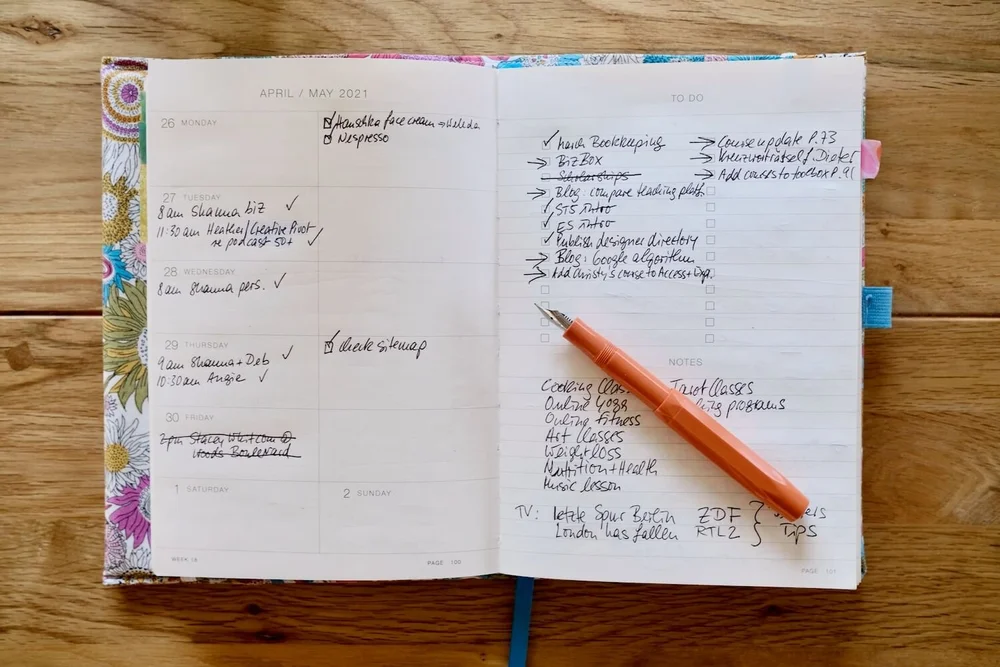 APRIL / MAY 2021
26 MONDAY
Hauschka face cream → Weleda
Nespresso
27 TUESDAY
8am Shanna biz ✓
11:30am Heather/Creative Pivot
re podcast 50+ ✓
28 WEDNESDAY
8am Shanna pers. ✓
29 THURSDAY
9am Shanna + Deb ✓
10:30am Angie ✓
check sitemap
30 FRIDAY
2pm Stacey Whitcomb @
Woods Boulevard
1 SATURDAY
2 SUNDAY
WEEK 18
PAGE 100
TO DO
✓ March Bookkeeping
→ BizBox
Scholarships
→ Blog: compare teaching platf.
✓ STS intro
✓ ES intro
✓ Publish designer directory
→ Blog: Google algorithm
→ Add Christy's course to Access+
→ Course update P.73
→ Kreuzworträtsel f. Dieter
→ Add courses to toolbox P.91
NOTES
Cooking Tarot Classes
Online Yoga programs
Online Fitness
Art Classes
Weightloss
Nutrition + Health
Music lesson
TV: letzte Spur Berlin ZDF
London has fallen RTL2 Tips
PAGE 101